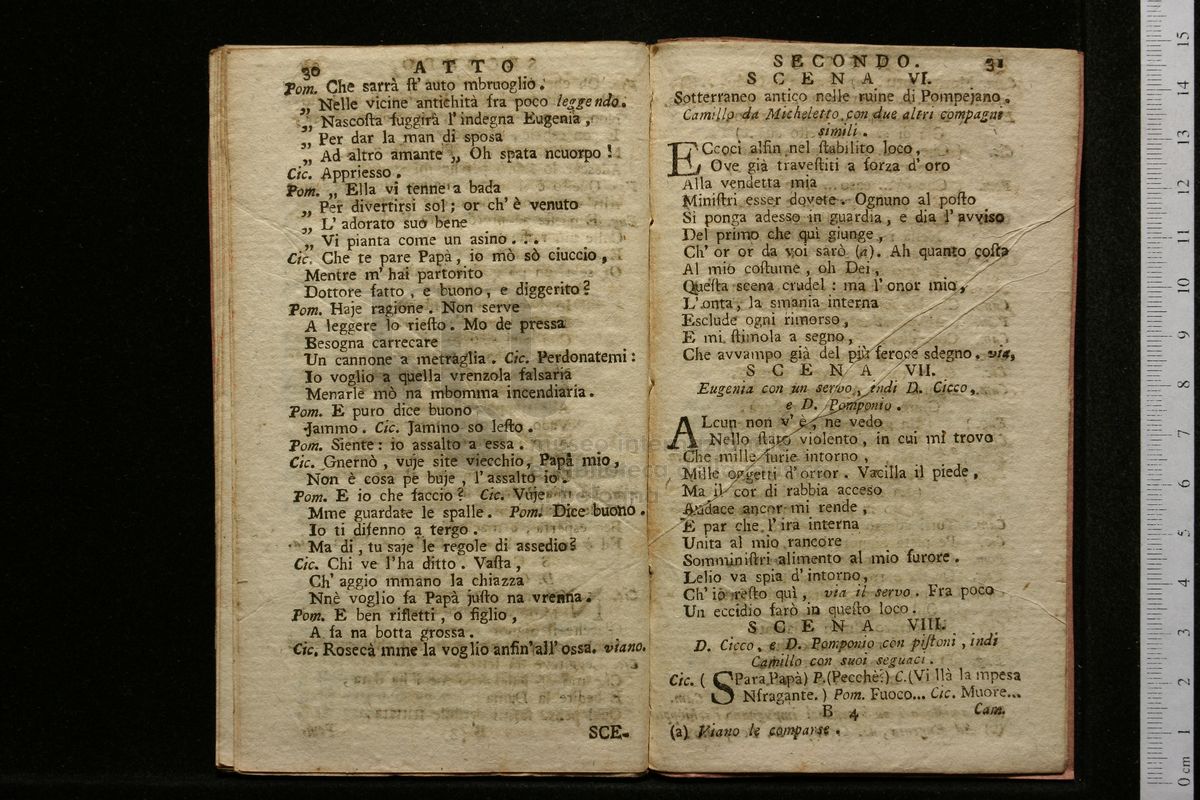 30
ATTO
Pom. Che sarrà ſt' auto mbruoglio.
„ Nelle vicine antichità fra poco leggendo.
„ Naſcoſta fuggirà l' indegna Eugenia,
„ Per dar la man di spoſa
„ Ad altro amante „ Oh spata ncuorpo!
Cic. Appriesso.
Pom. „ Ella vi tenne a bada
„ Per divertirsi sol; or ch' è venuto
„ L' adorato suo bene
„ Vi pianta come un asino...
Cic. Che te pare Papà, io mò sò ciuccio,
Mentre m' hai partorito
Dottore fatto, e buono, e diggerito?
Pom. Haje ragione. Non serve
A leggere lo rieſto. Mo de pressa
Besogna carrecare
Un cannone a metraglia. Cic. Perdonatemi:
Io voglio a quella vrenzola falsaria
Menarle mò na mbomma incendiaria.
Pom. E puro dice buono
Jammo. Cic. Jammo so leſto.
Pom. Siente: io assalto a essa.
Cic. Gnernò, vuje site viecchio, Papà mio,
Non è cosa pe buje, l' assalto io.
Pom. E io che faccio? Cic. Vuje
Mme guardate le spalle. Pom. Dice buono.
Io ti difenno a tergo.
Ma di, tu saje le regole di assedio?
Cic. Chi ve l'ha ditto. Vaſta,
Ch' aggio mmano la chiazza
Nnè voglio fa Papà juſto na vrenna.
Pom. E ben rifletti, o figlio,
A fa na botta grossa.
Cic. Rosecà mme la voglio anfin'all' ossa. viano.
SCE-
SECONDO.
31
SCENA VI.
Sotterraneo antico nelle ruine di Pompejano.
Camillo da Micheletto con due altri compagni
simili.
ECcoci alfin nel ſtabilito loco,
Ove già traveſtiti a forza d' oro
Alla vendetta mia
Miniſtri esser dovete. Ognuno al poſto
Si ponga adesso in guardia, e dia l' avviso
Del primo che quì giunge,
Ch' or or da voi sarò (a). Ah quanto coſta
Al mio coſtume, oh Dei,
Queſta scena crudel: ma l' onor mio,
L' onta, la smania interna
Esclude ogni rimorso,
E mi ſtimola a segno,
Che avvampo già del più feroce sdegno. via,
SCENA VII.
Eugenia con un servo, indi D. Cicco,
e D. Pomponio.
ALcun non v' è, ne vedo
Nello ſtato violento, in cui mi trovo
Che mille furie intorno,
Mille oggetti d' orror. Vacilla il piede,
Ma il cor di rabbia acceso
Audace ancor mi rende,
E par che l' ira interna
Unita al mio rancore
Somminiſtri alimento al mio furore.
Lelio va spia d' intorno,
Ch' io reſto quì, via il servo. Fra poco
Un eccidio farò in queſto loco.
SCENA VIII.
D. Cicco, e D. Pomponio con piſtoni, indi
Camillo con suoi seguaci.
Cic. (SPara Papà) P.(Pecchè?) C.(Vi llà la mpesa
Nfragante.) Pom. Fuoco... Cic. Muore...
B 4
Cam.
(a) Viano le comparse.